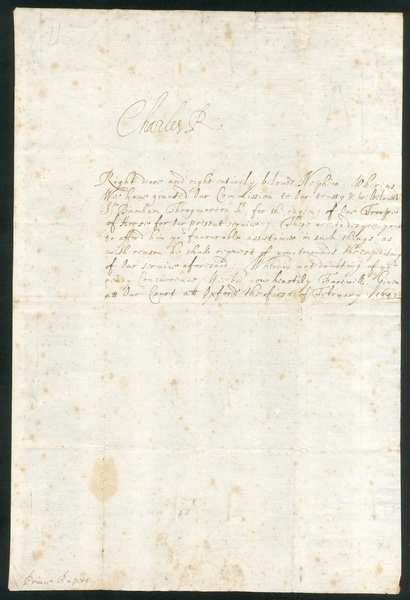 Charles R
Right deare and right entirely beloved Nephew. Whereas
Wee have granted Our Commission to Our trusty & welbeloved
Sr Baynham Throgmorton Kt for the raysing of One Troope
of Horse for Our present service; These are to desire you
to afford him yor favourable assistance in such things as
with reason he shall request of you towards the expediting
of Our service aforesaid. Wherein not doubting of yor
ready Concurrence Wee bid you heartily Farewell. Given
att Our Court att Oxford the first of February 1642
Prince Rupert